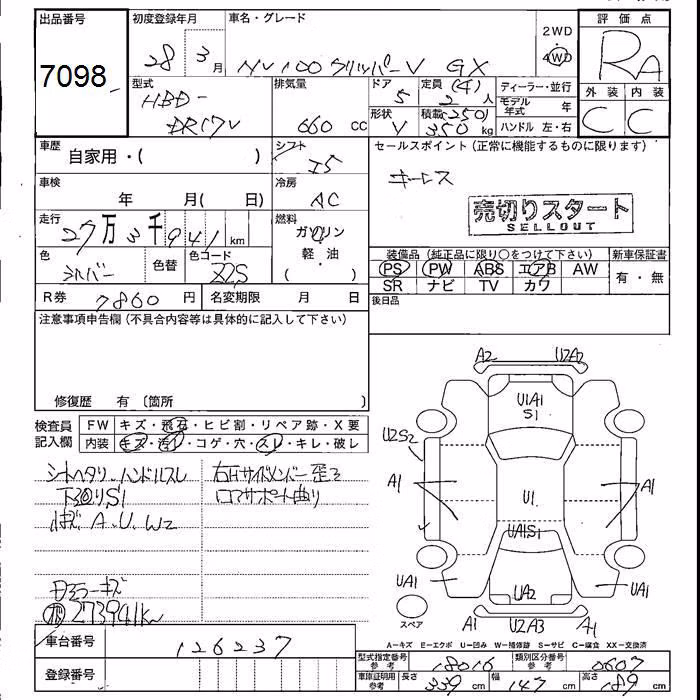 出品番号
7098
初度登録年月
28年3月
車名・グレード
NV100クリッパーV GX
2WD
4WD
評価点
RA
外装 内装
C C
型式
HBD-
DR17V
排気量
660cc
ドア
5
定員(4)
2人
形状
V
積載(250)
350kg
ディーラー・並行
モデル年式 年
ハンドル 左・右
車歴
自家用・( )
シフト
I5
セールスポイント(正常に機能するものに限ります)
キーレス
売切りスタート
SELLOUT
車検
年 月( 日)
冷房
AC
走行
27万3千941km
燃料
ガソリン
軽・油
( )
色
シルバー
色替
色コード
Z2S
装備品(純正品に限り○をつけて下さい)
PS PW ABS エアB AW
SR ナビ TV カワ
新車保証書
有・無
後日品
R券 7860円
名変期限 月 日
注意事項申告欄(不具合内容等は具体的に記入して下さい)
修復歴 有〔箇所 〕
検査員記入欄
FW キズ・飛石・ヒビ割・リペア跡・X要
内装 キズ・汚れ・コゲ・穴・スレ・キレ・破レ
シートヘタリ ハンドルスレ
下廻りS1
A.U.W2
右Fサイドメンバー歪ミ
コアサポート曲り
ミラーキズ
273941km
A2
U2A2
U1A1
S1
U2S2
A1
A1
U1
U1A1S1
UA1
UA2
UA1
A1
U2A3
A1
スペア
A-キズ E-エクボ U-凹み W-補修跡 S-サビ C-腐食 XX-交換済
車台番号
126237
登録番号
型式指定番号 参考 18016
類別区分番号 参考 0607
車庫証明用 参考 長さ 339cm 幅 147cm 高さ 189cm